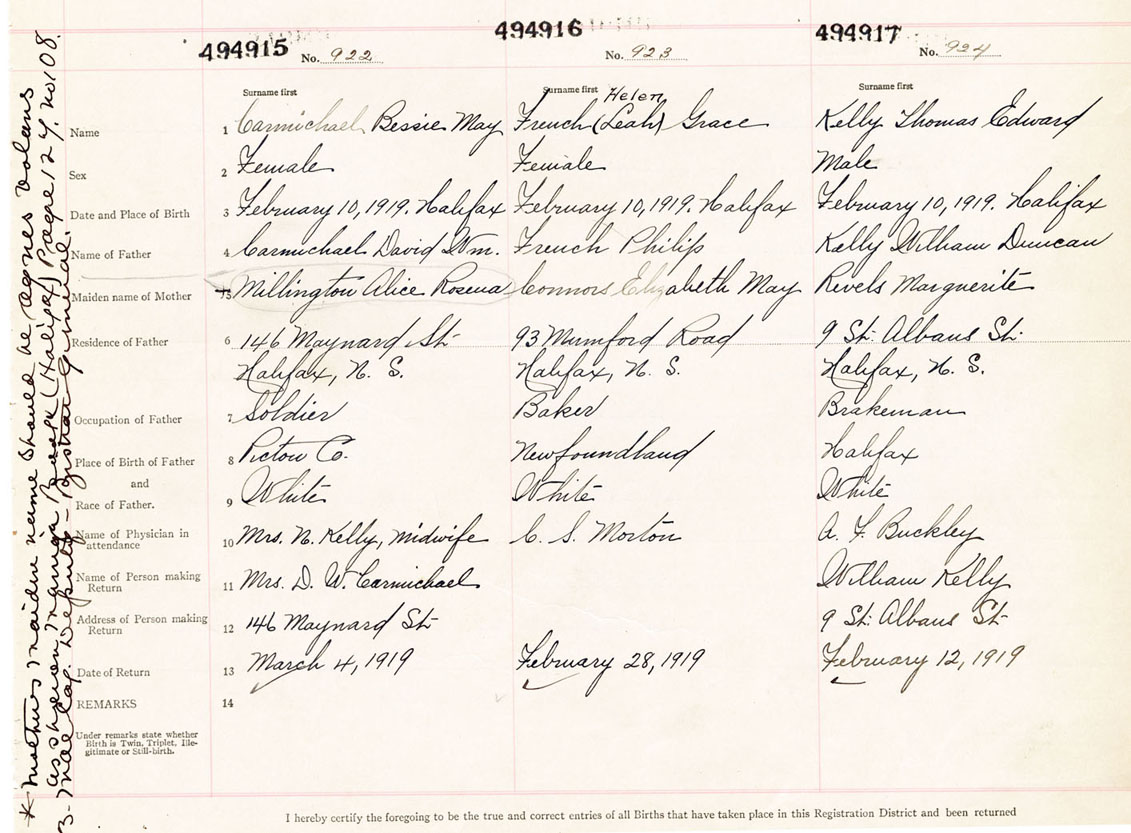 494915 No. 922
494916 No. 923
494917 No. 924
Surname first Surname first Surname first
Helen
Name 1 Carmichael Bessie May French (Leah) Grace Kelly Thomas Edward
Sex 2 Female Female Male
Date and Place of Birth 3 February 10, 1919. Halifax February 10, 1919. Halifax February 10, 1919. Halifax
Name of Father 4 Carmichael David Wm. French Philip Kelly William Duncan
Maiden name of Mother 5 Millington Alice Rosena Connors Elizabeth May Revels Marguerite
Residence of Father 6 146 Maynard St. 93 Mumford Road 9 St. Albans St.
Halifax, N. S. Halifax, N. S. Halifax, N. S.
Occupation of Father 7 Soldier Baker Brakeman
Place of Birth of Father 8 Pictou Co. Newfoundland Halifax
and
Race of Father. 9 White White White
Name of Physician in
attendance 10 Mrs. N. Kelly, midwife C. S. Morton A. F. Buckley
Name of Person making
Return 11 Mrs. D. W. Carmichael William Kelly
Address of Person making
Return 12 146 Maynard St. 9 St. Albans St.
Date of Return 13 March 4, 1919 February 28, 1919 February 12, 1919
REMARKS 14
Under remarks state whether
Birth is Twin, Triplet, Ille-
gitimate or Still-birth.
* Mothers maiden name should be Agnes
as shown in Book (Halifax) Page 124. No 108.
Deputy - Registrar General.
I hereby certify the foregoing to be the true and correct entries of all Births that have taken place in this Registration District and been returned